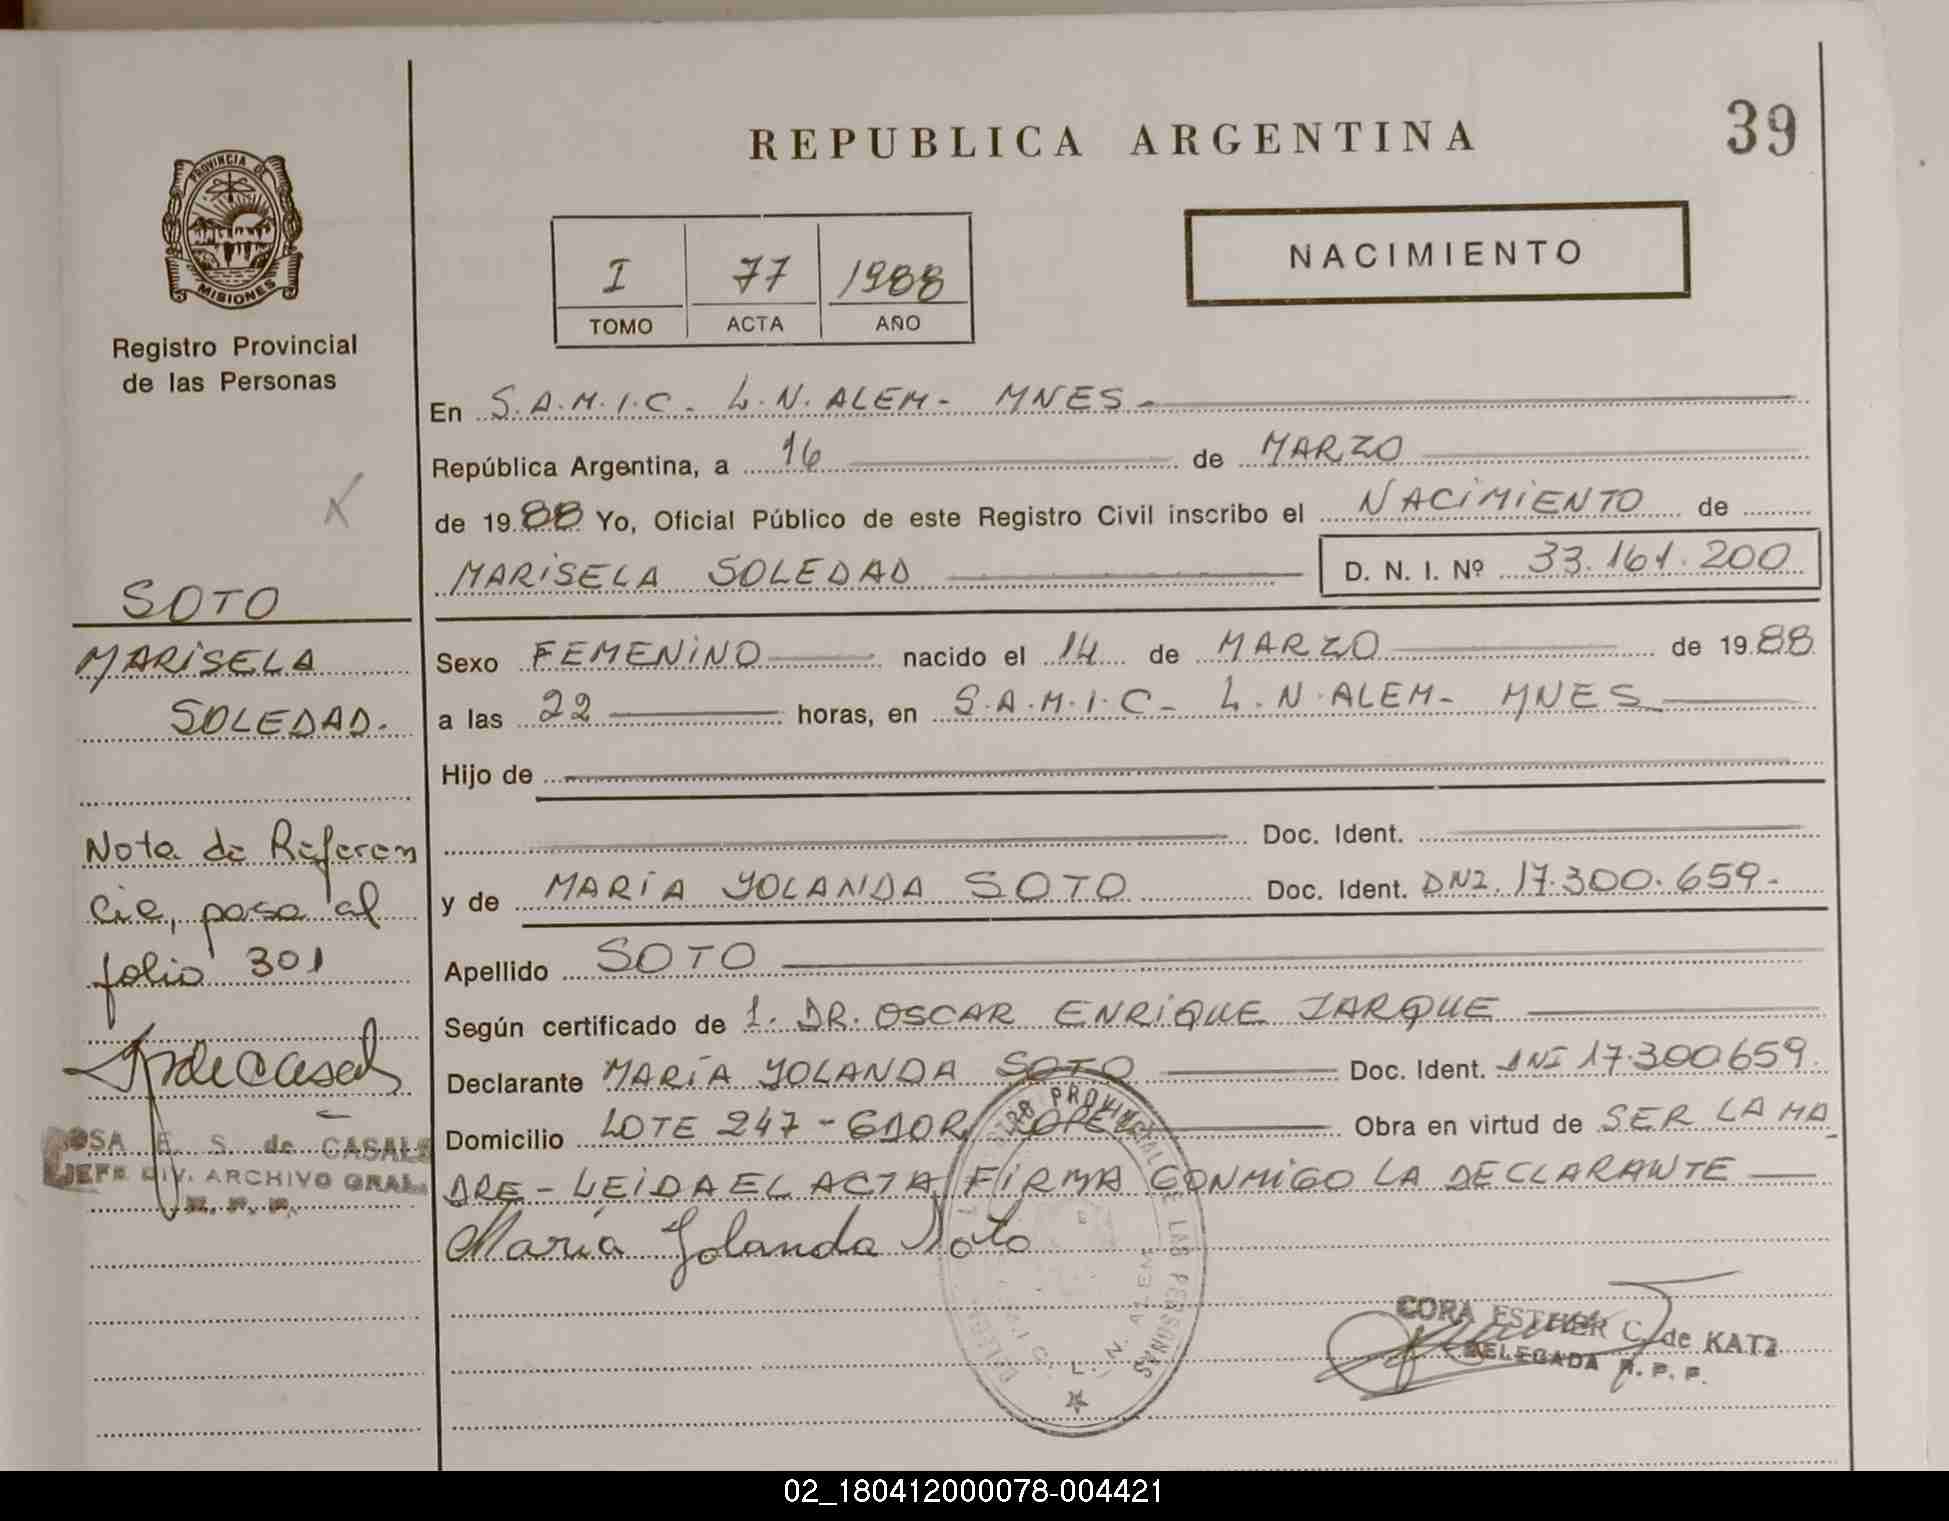 REPUBLICA ARGENTINA
39
PROVINCIA DE
MISIONES
Registro Provincial
de las Personas
I 77 1988
TOMO ACTA AÑO
NACIMIENTO
En S.A.M.I.C. L.N. ALEM - MNES -
República Argentina, a 16 de MARZO
de 1988 Yo, Oficial Público de este Registro Civil inscribo el NACIMIENTO de
MARISELA SOLEDAD D. N. I. Nº 33.161.200
SOTO
MARISELA
SOLEDAD.
Sexo FEMENINO nacido el 14 de MARZO de 1988
a las 22 horas, en S.A.M.I.C - L.N. ALEM - MNES
Hijo de
Doc. Ident.
y de MARÍA YOLANDA SOTO Doc. Ident. DNI. 17.300.659.-
Apellido SOTO
Según certificado de 1. DR. OSCAR ENRIQUE JARQUE
Declarante MARÍA YOLANDA SOTO Doc. Ident. DNI 17.300659.
Domicilio LOTE 247 - GDOR. LOPEZ Obra en virtud de SER LA MA
DRE - LEIDA EL ACTA FIRMA CONMIGO LA DECLARANTE
María Yolanda Soto
Nota de Referen
cia, pasa al
folio 301
ROSA E. S. de CASALS
JEFE DIV. ARCHIVO GRAL.
R. P. P.
PROVINCIAL DE LAS PERSONAS
L. N. ALEM
CORA ESTHER C. de KATZ
DELEGADA R. P. P.
02_180412000078-004421